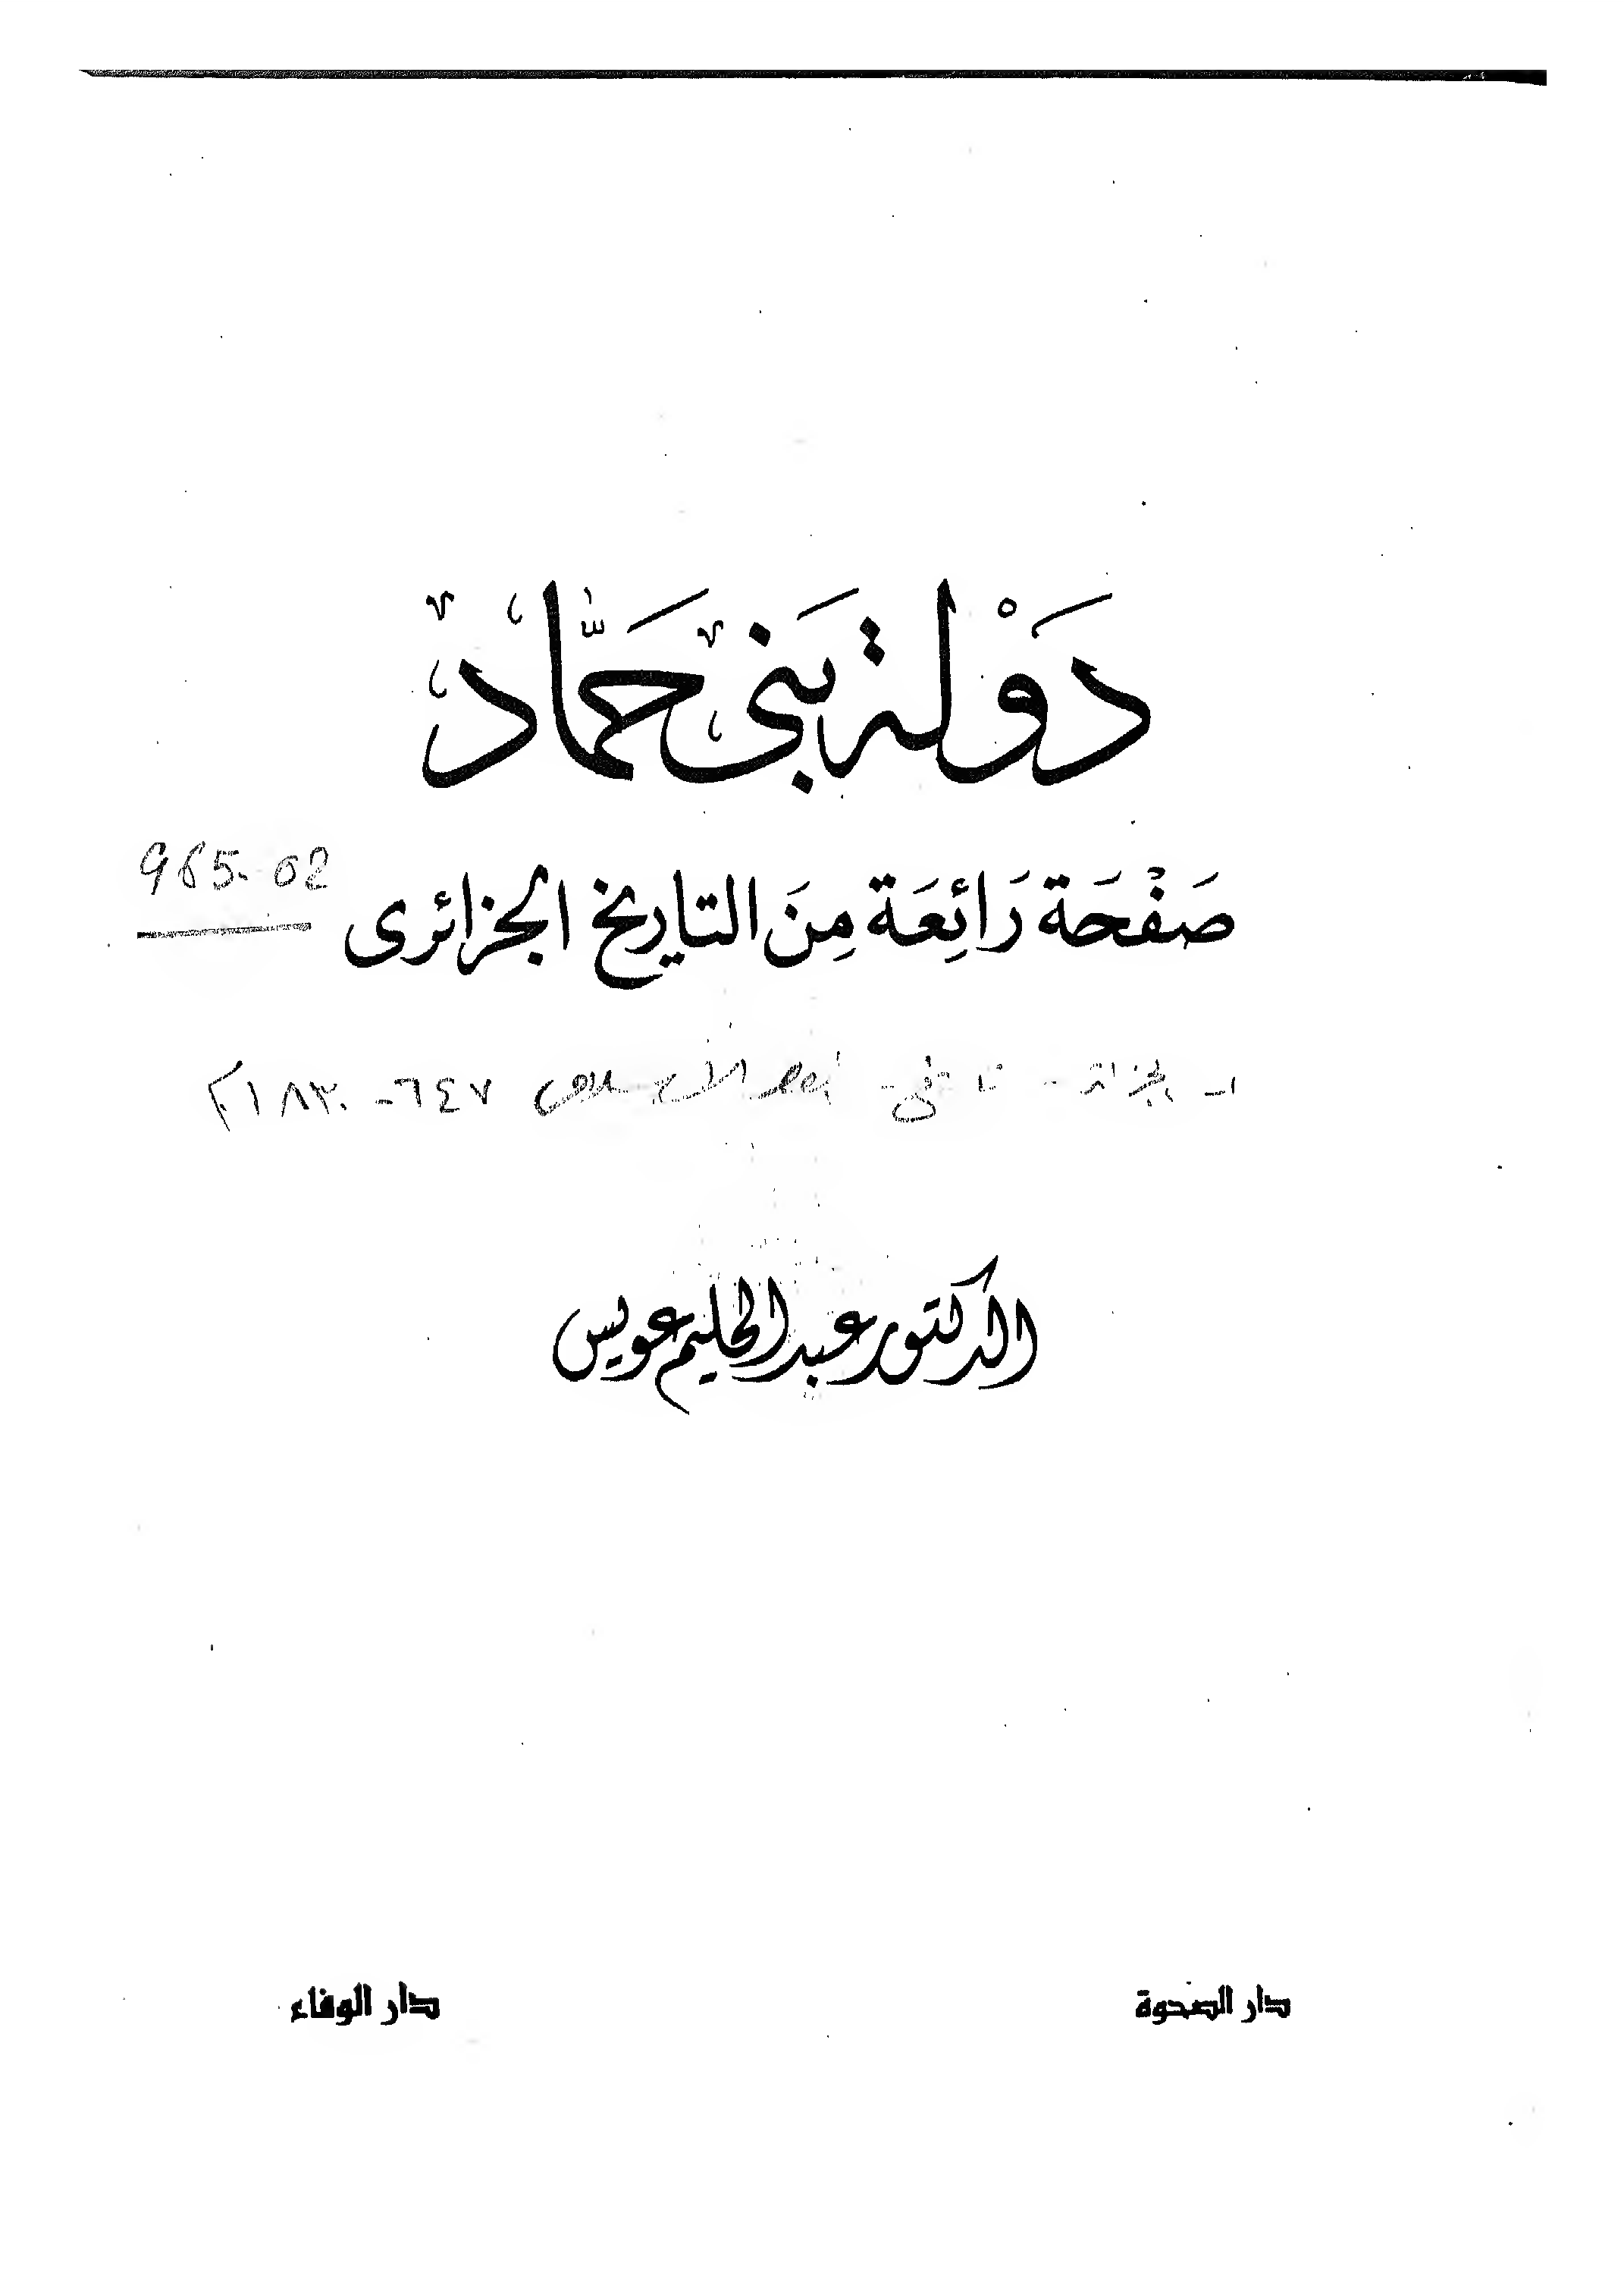 دَوْلة بَنِي حَمَّاد
صَفْحَة رَائِعَة مِنَ التاريخ الجزائرى
965.02
١- الجزائر - تاريخ - العصر الإسلامى ٦٤٧-١٨٣٠م
الدكتور عبد الحليم عويس
دار الصحوة
دار الوفاء